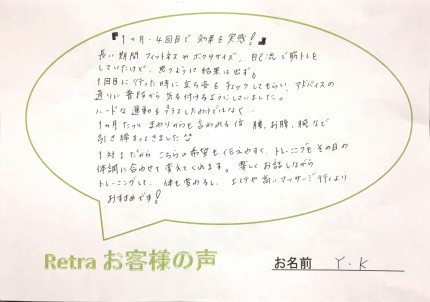 『1ヶ月・4回目で効果を実感!』
長い期間フィットネスやボクササイズ、自己流で筋トレを
していたけど、思うように結果は出ず。
1回目に行った時に立ち姿をチェックしてもらい、アドバイスの
通りに普段から気を付けるようにしていました。
ハードな運動をプラスしたわけではなく…
1ヶ月たって まわりからも言われる位 腰、お腹、腕など
引き締まってきました
1対1だから こちらの希望も伝えやすく、トレーニングもその日の
体調に合わせて変えてくれます。楽しくお話しながら
トレーニングして、体も変わるし、エステや高いマッサージ行くより
おすすめです!
Retra お客様の声
お名前 Y・K